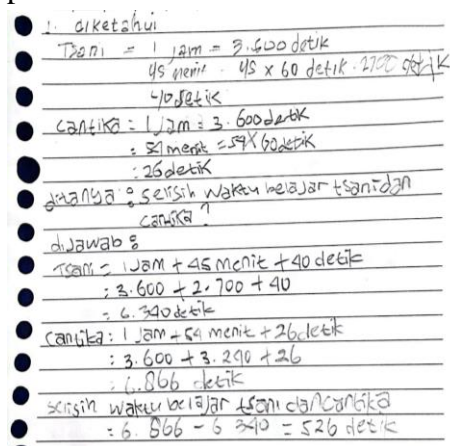 1. diketahui
Tsani = 1 jam = 3.600 detik
45 menit = 45 x 60 detik = 2700 detik
40 detik
Cantika = 1 Jam = 3.600 detik
: 54 menit = 54 x 60 detik
: 26 detik
ditanya : selisih waktu belajar tsani dan
cantika ?
dijawab :
Tsani = 1 Jam + 45 menit + 40 detik
: 3.600 + 2.700 + 40
= 6.340 detik
Cantika : 1 Jam + 54 menit + 26 detik
: 3.600 + 3.240 + 26
: 6.866 detik
selisih waktu belajar tsani dan cantika
: 6.866 - 6 340 = 526 detik